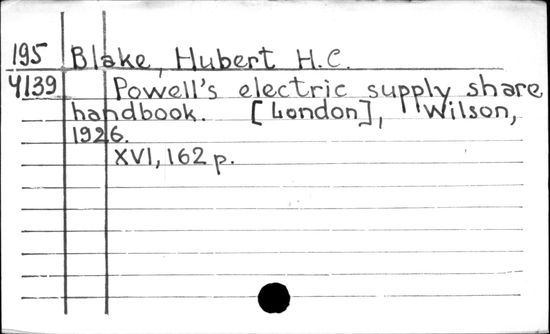 195 Blake, Hubert H.C.
4139 Powell's electric supply share
handbook. [London], Wilson,
1926.
XVI, 162 p.